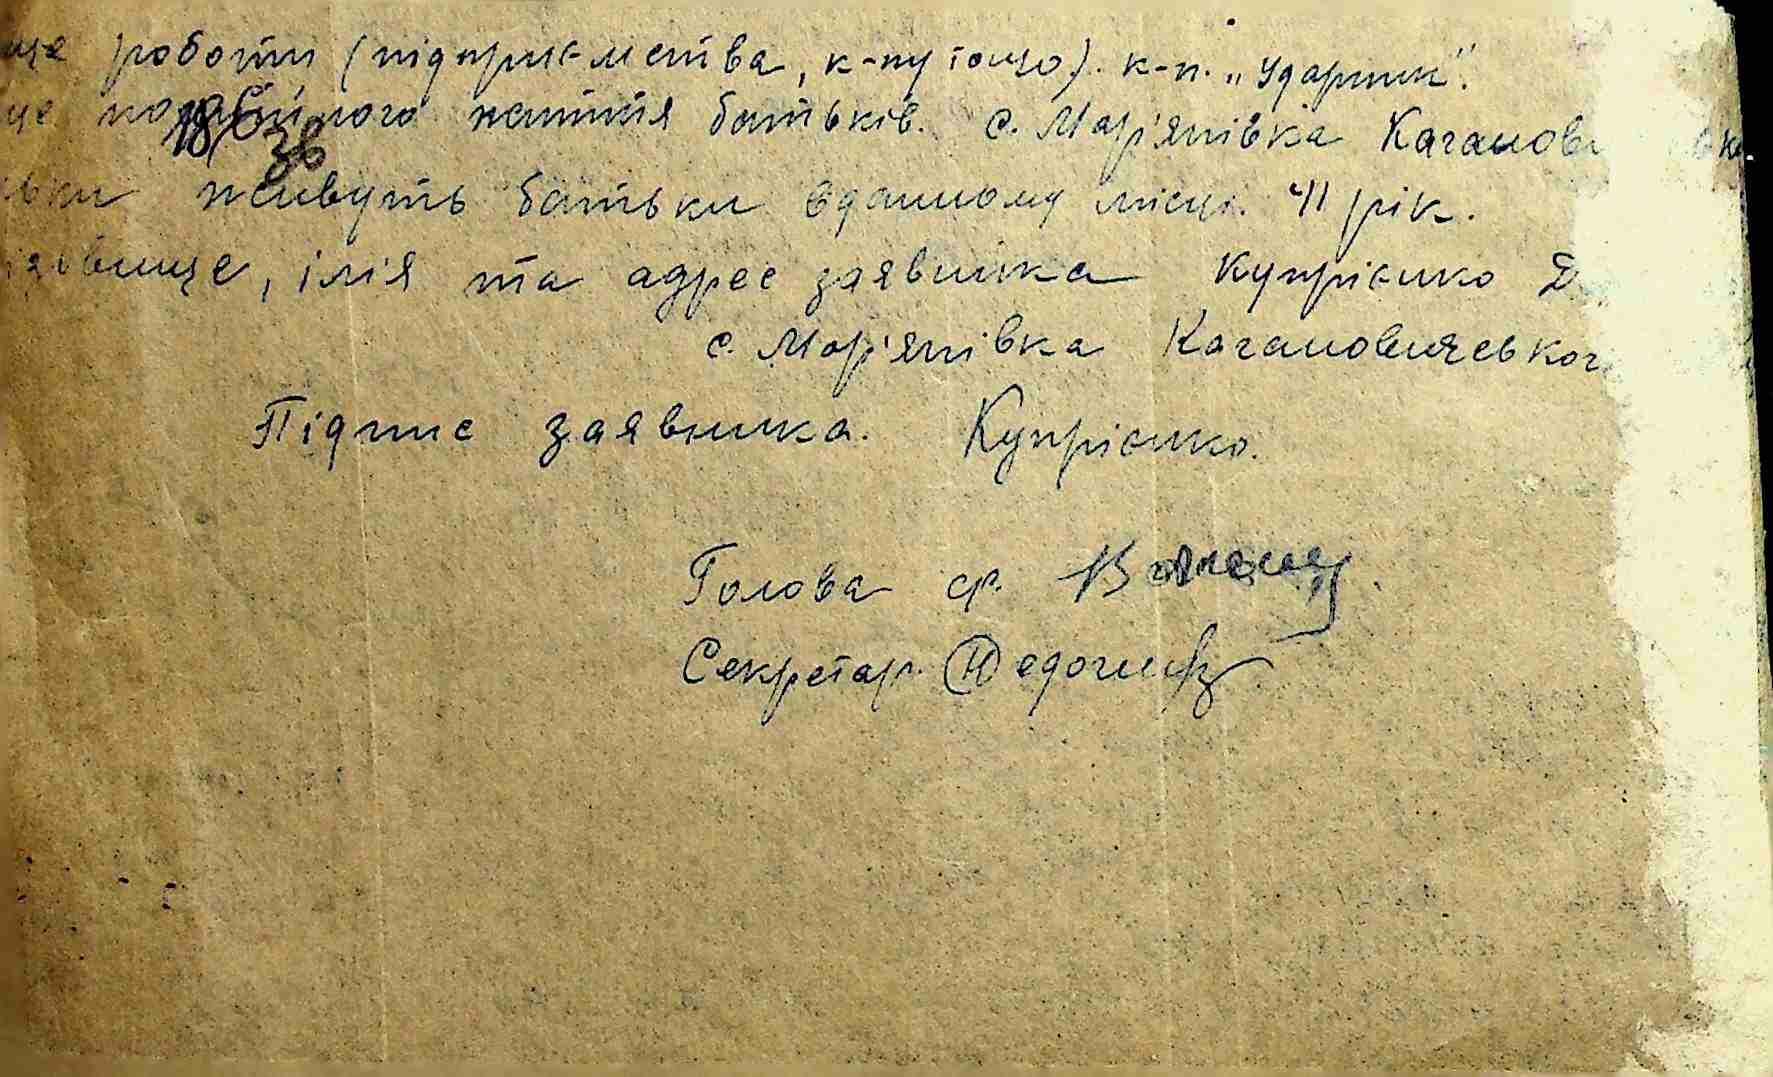 ще роботи (підприємства, к-пу тощо). к-п. „Ударник".
це постійного життя батьків. с. Мар'янівка Каганови
ьки живуть батьки в данному місці. 41 рік.
ізвище, ім'я та адрес заявника Купрієнко Д
с. Мар'янівка Кагановичського
Підпис заявника. Купрієнко.
Голова с/р.
Секретар.